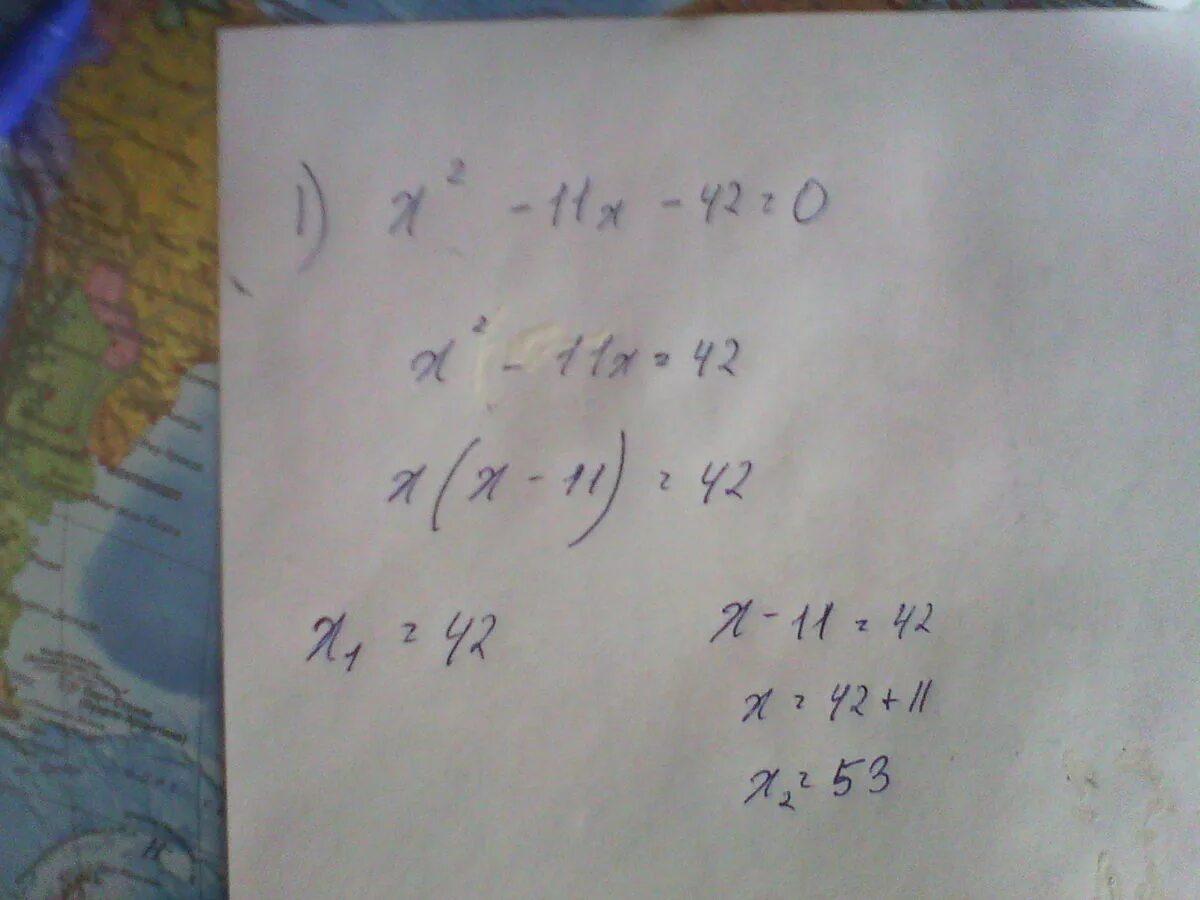 1) x² - 11x - 42 = 0
x² - 11x = 42
x(x - 11) = 42
x₁ = 42
x - 11 = 42
x = 42 + 11
x₂ = 53